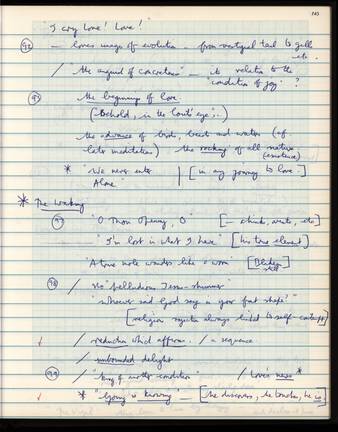 "I cry Love! Love!
92 — loves image of evolution — from vestigial tail to gills etc.
/ "the anguish of concreteness" — its relation to the "condition of joy" ?
93 the beginnings of love
(Behold, in the lout's eye,..)
the advance of birds, beast and water (cf. later meditations) the rocking of all nature (existence)
* "We never enter Alone" | [in any journey to love]
* The Waking
97 "O Thou Opening, O" [— think, write, etc]
"I'm lost in what I have" [his true element]
"A true note wanders like a worm" [Blakean
98 / No "pelludious Jesus-shimmer"
"whoever said God may in your fat shape!"
[religion mystics always linked to self-contempt]
/ reduction which affirms. / a sequence
/ unbounded delight
99 / "King of another condition" / Love's
* "Going is knowing" — [he discovers, he touches, he is]